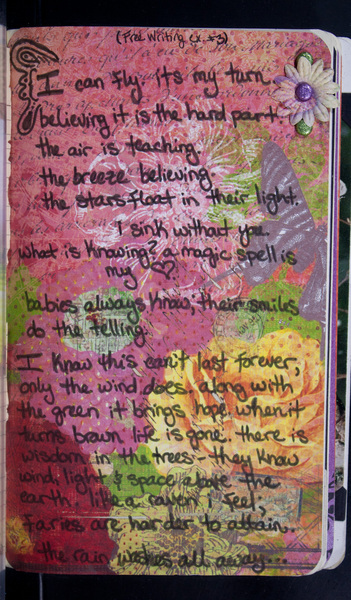 (Free Writing Ex. #3)
I can fly. Its my turn
believing it is the hard part.
the air is teaching.
the breeze believing
the stars float in their light.
I sink without you.
what is knowing? a magic spell is
my ♡
babies always know, their smiles
do the telling.
I know this can't last forever,
only the wind does. along with
the green it brings hope. when it
turns brown life is gone. there is
wisdom in the trees - they know
wind, light & space above the
earth. like a raven I feel,
faries are harder to attain.
the rain washes all away...